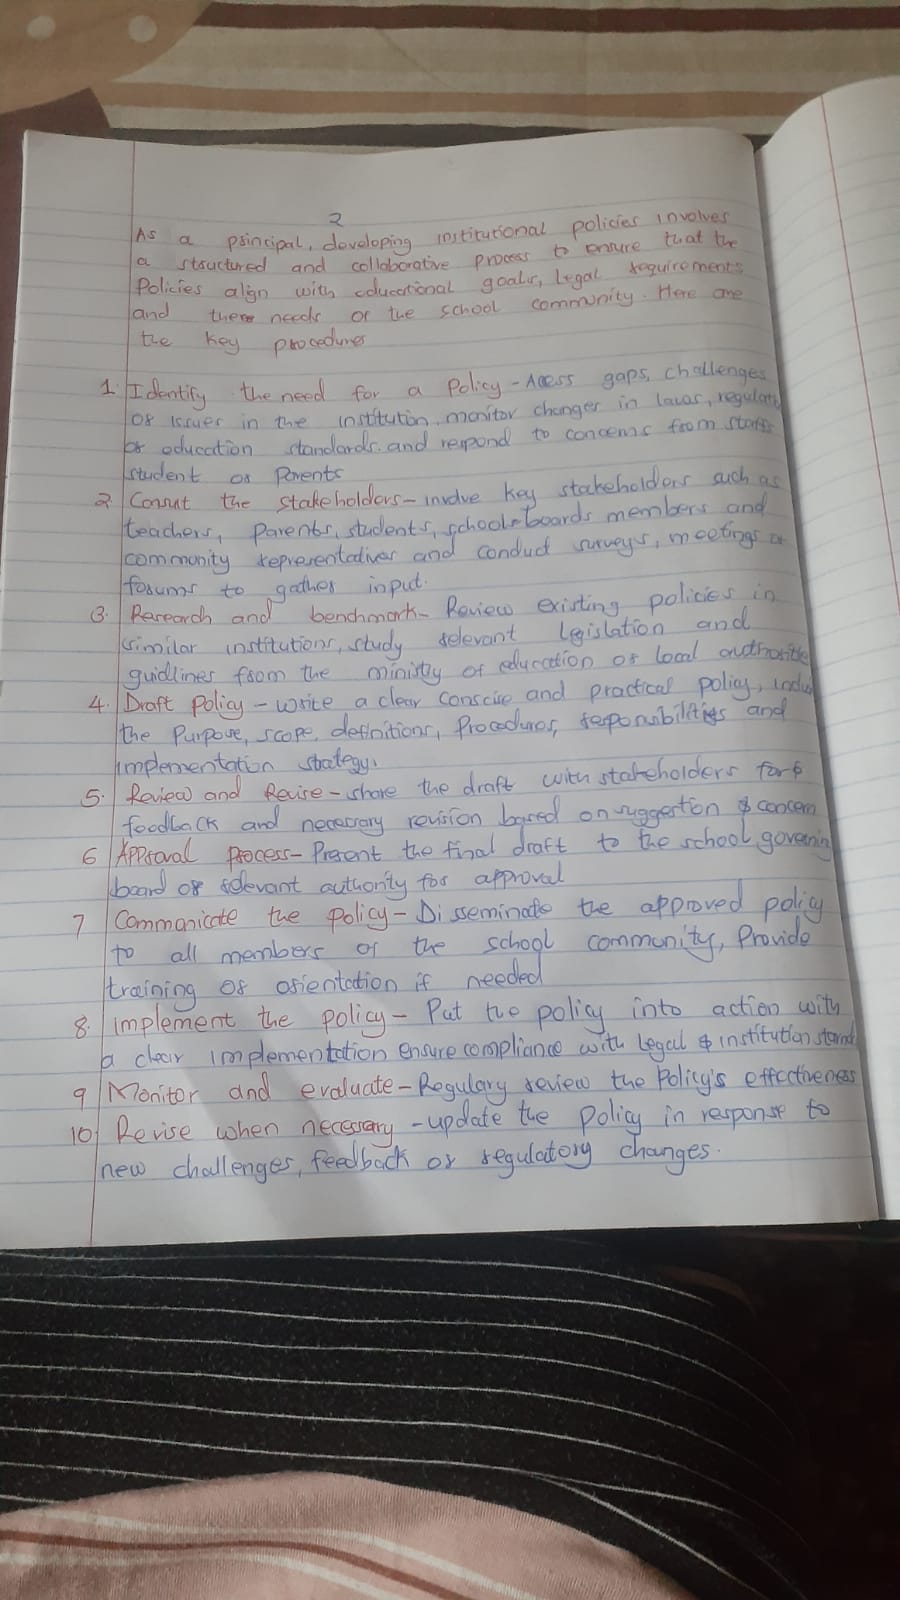 2
As a principal, developing institutional policies involves
a structured and collaborative process to ensure that the
Policies align with educational goals, Legal requirements
and there needs of the school community. Here are
the key procedures
1. Identify the need for a policy - Acess gaps, challenges
or issues in the institution, monitor changes in laws,
or education standards. and respond to concerns from staffs
student or Parents
2 Consut the stakeholders - involve key stakeholders such as
teachers, parents, students, school boards members and
community representatives and conduct surveys, meetings or
forums to gather input.
3. Research and benchmark - Review existing policies in
similar institutions, study relevant legislation and
guidlines from the ministry of education or local
4. Draft policy - write a clear conscise and practical policy,
the Purpose, scope, definitions, Procedures, responsibilities and
implementation strategy.
5. Review and Revise - share the draft with stakeholders for
feedback and necessary revision based on suggestion & concern
6 Approval process - Present the final draft to the school
board or relevant authority for approval
7 Communicate the policy - Disseminate the approved policy
to all members of the school community, Provide
training or orientation if needed
8. implement the policy - Put the policy into action with
a clear implementation ensure compliance with legal & institution
9 Monitor and evaluate - Regulary review the Policy's effectiveness
10 Revise when necessary - update the policy in response to
new challenges, feedback or regulatory changes.